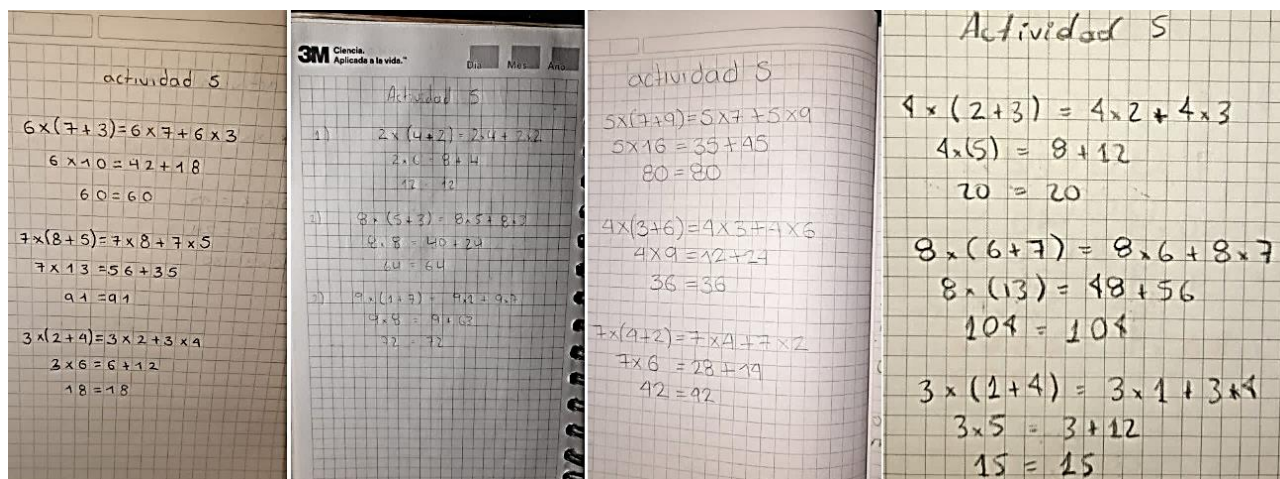 actividad 5
6×(7+3)=6×7+6×3
6×10=42+18
60=60
7×(8+5)=7×8+7×5
7×13=56+35
91=91
3×(2+4)=3×2+3×4
3×6=6+12
18=18
3M Ciencia.
Aplicada a la vida.™
Día Mes Año
Actividad 5
1) 2×(4+2)=2×4+2×2
2×6=8+4
12=12
2) 8×(5+3)=8×5+8×3
8×8=40+24
64=64
3) 9×(1+7)=9×1+9×7
9×8=9+63
72=72
actividad 5
5×(7+9)=5×7+5×9
5×16=35+45
80=80
4×(3+6)=4×3+4×6
4×9=12+24
36=36
7×(4+2)=7×4+7×2
7×6=28+14
42=42
Actividad 5
4×(2+3)=4×2+4×3
4×(5)=8+12
20=20
8×(6+7)=8×6+8×7
8×(13)=48+56
104=104
3×(1+4)=3×1+3×4
3×5=3+12
15=15